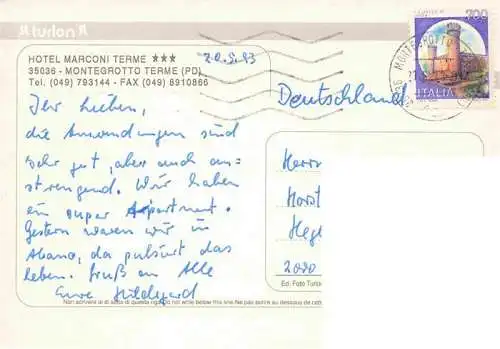 turlon
HOTEL MARCONI TERME ★★★
35036 - MONTEGROTTO TERME (PD)
Tel. (049) 793144 - FAX (049) 8910866
20.5.93
Ihr Lieben,
die Anwendungen sind
sehr gut, aber auch an-
strengend. Wir haben
ein super Apartment.
Gestern waren wir in
Abano, da pulsiert das
leben. Gruß an Alle
Eure Hildegard
Deutschland
Herrn
Horst
2000
700
ITALIA
MONTEGROTTO
Ed. Foto Turlon
Non scrivere al di sotto di questa riga. Do not write below this line. Ne pas écrire au dessous de cet